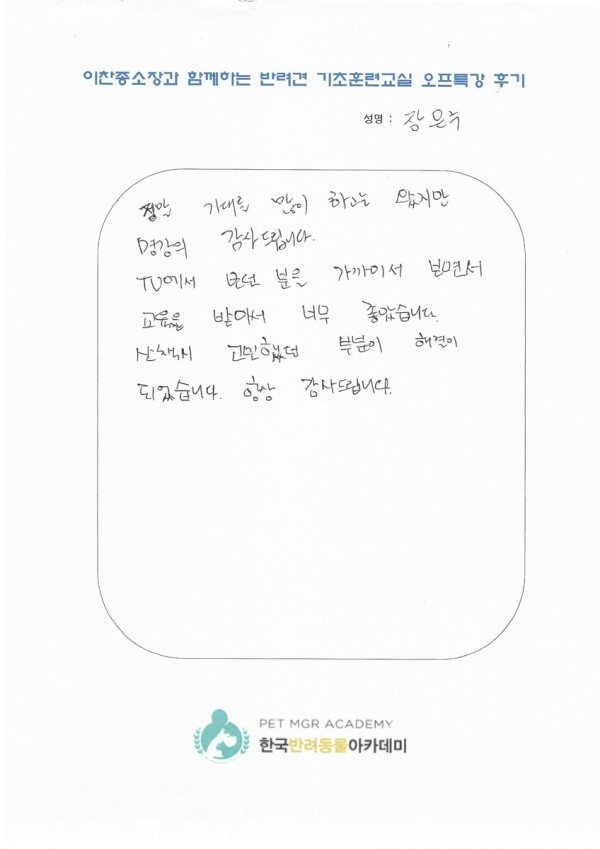 이찬종소장과 함께하는 반려견 기초훈련교실 오프특강 후기
성명 : 장은주
정말 기대를 많이 하고는 왔지만
명강의 감사드립니다.
TV에서 보던 분을 가까이서 보면서
교육을 받아서 너무 좋았습니다.
산책시 고민했던 부분이 해결이
되었습니다. 항상 감사드립니다.
PET MGR ACADEMY
한국반려동물아카데미